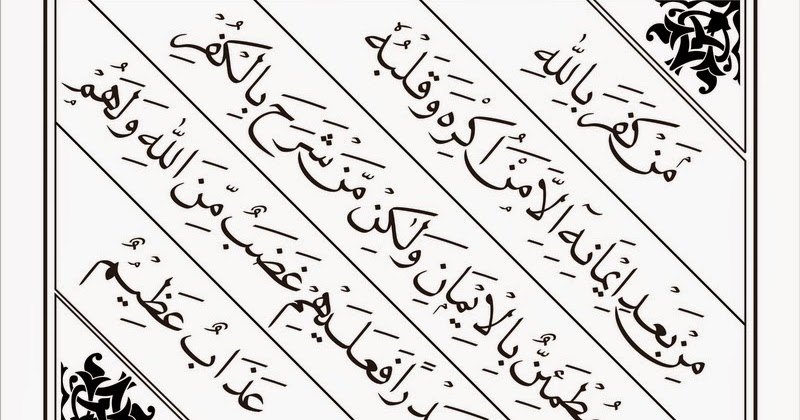 مَنْ كَفَرَ بِاللّٰهِ
مِنْ بَعْدِ اِيْمَانِهٖٓ اِلَّا مَنْ اُكْرِهَ وَقَلْبُهٗ
مُطْمَئِنٌّ بِالْاِيْمَانِ وَلٰكِنْ مَّنْ شَرَحَ بِالْكُفْرِ
فَعَلَيْهِمْ غَضَبٌ مِّنَ اللّٰهِ وَلَهُمْ
عَذَابٌ عَظِيْمٌ